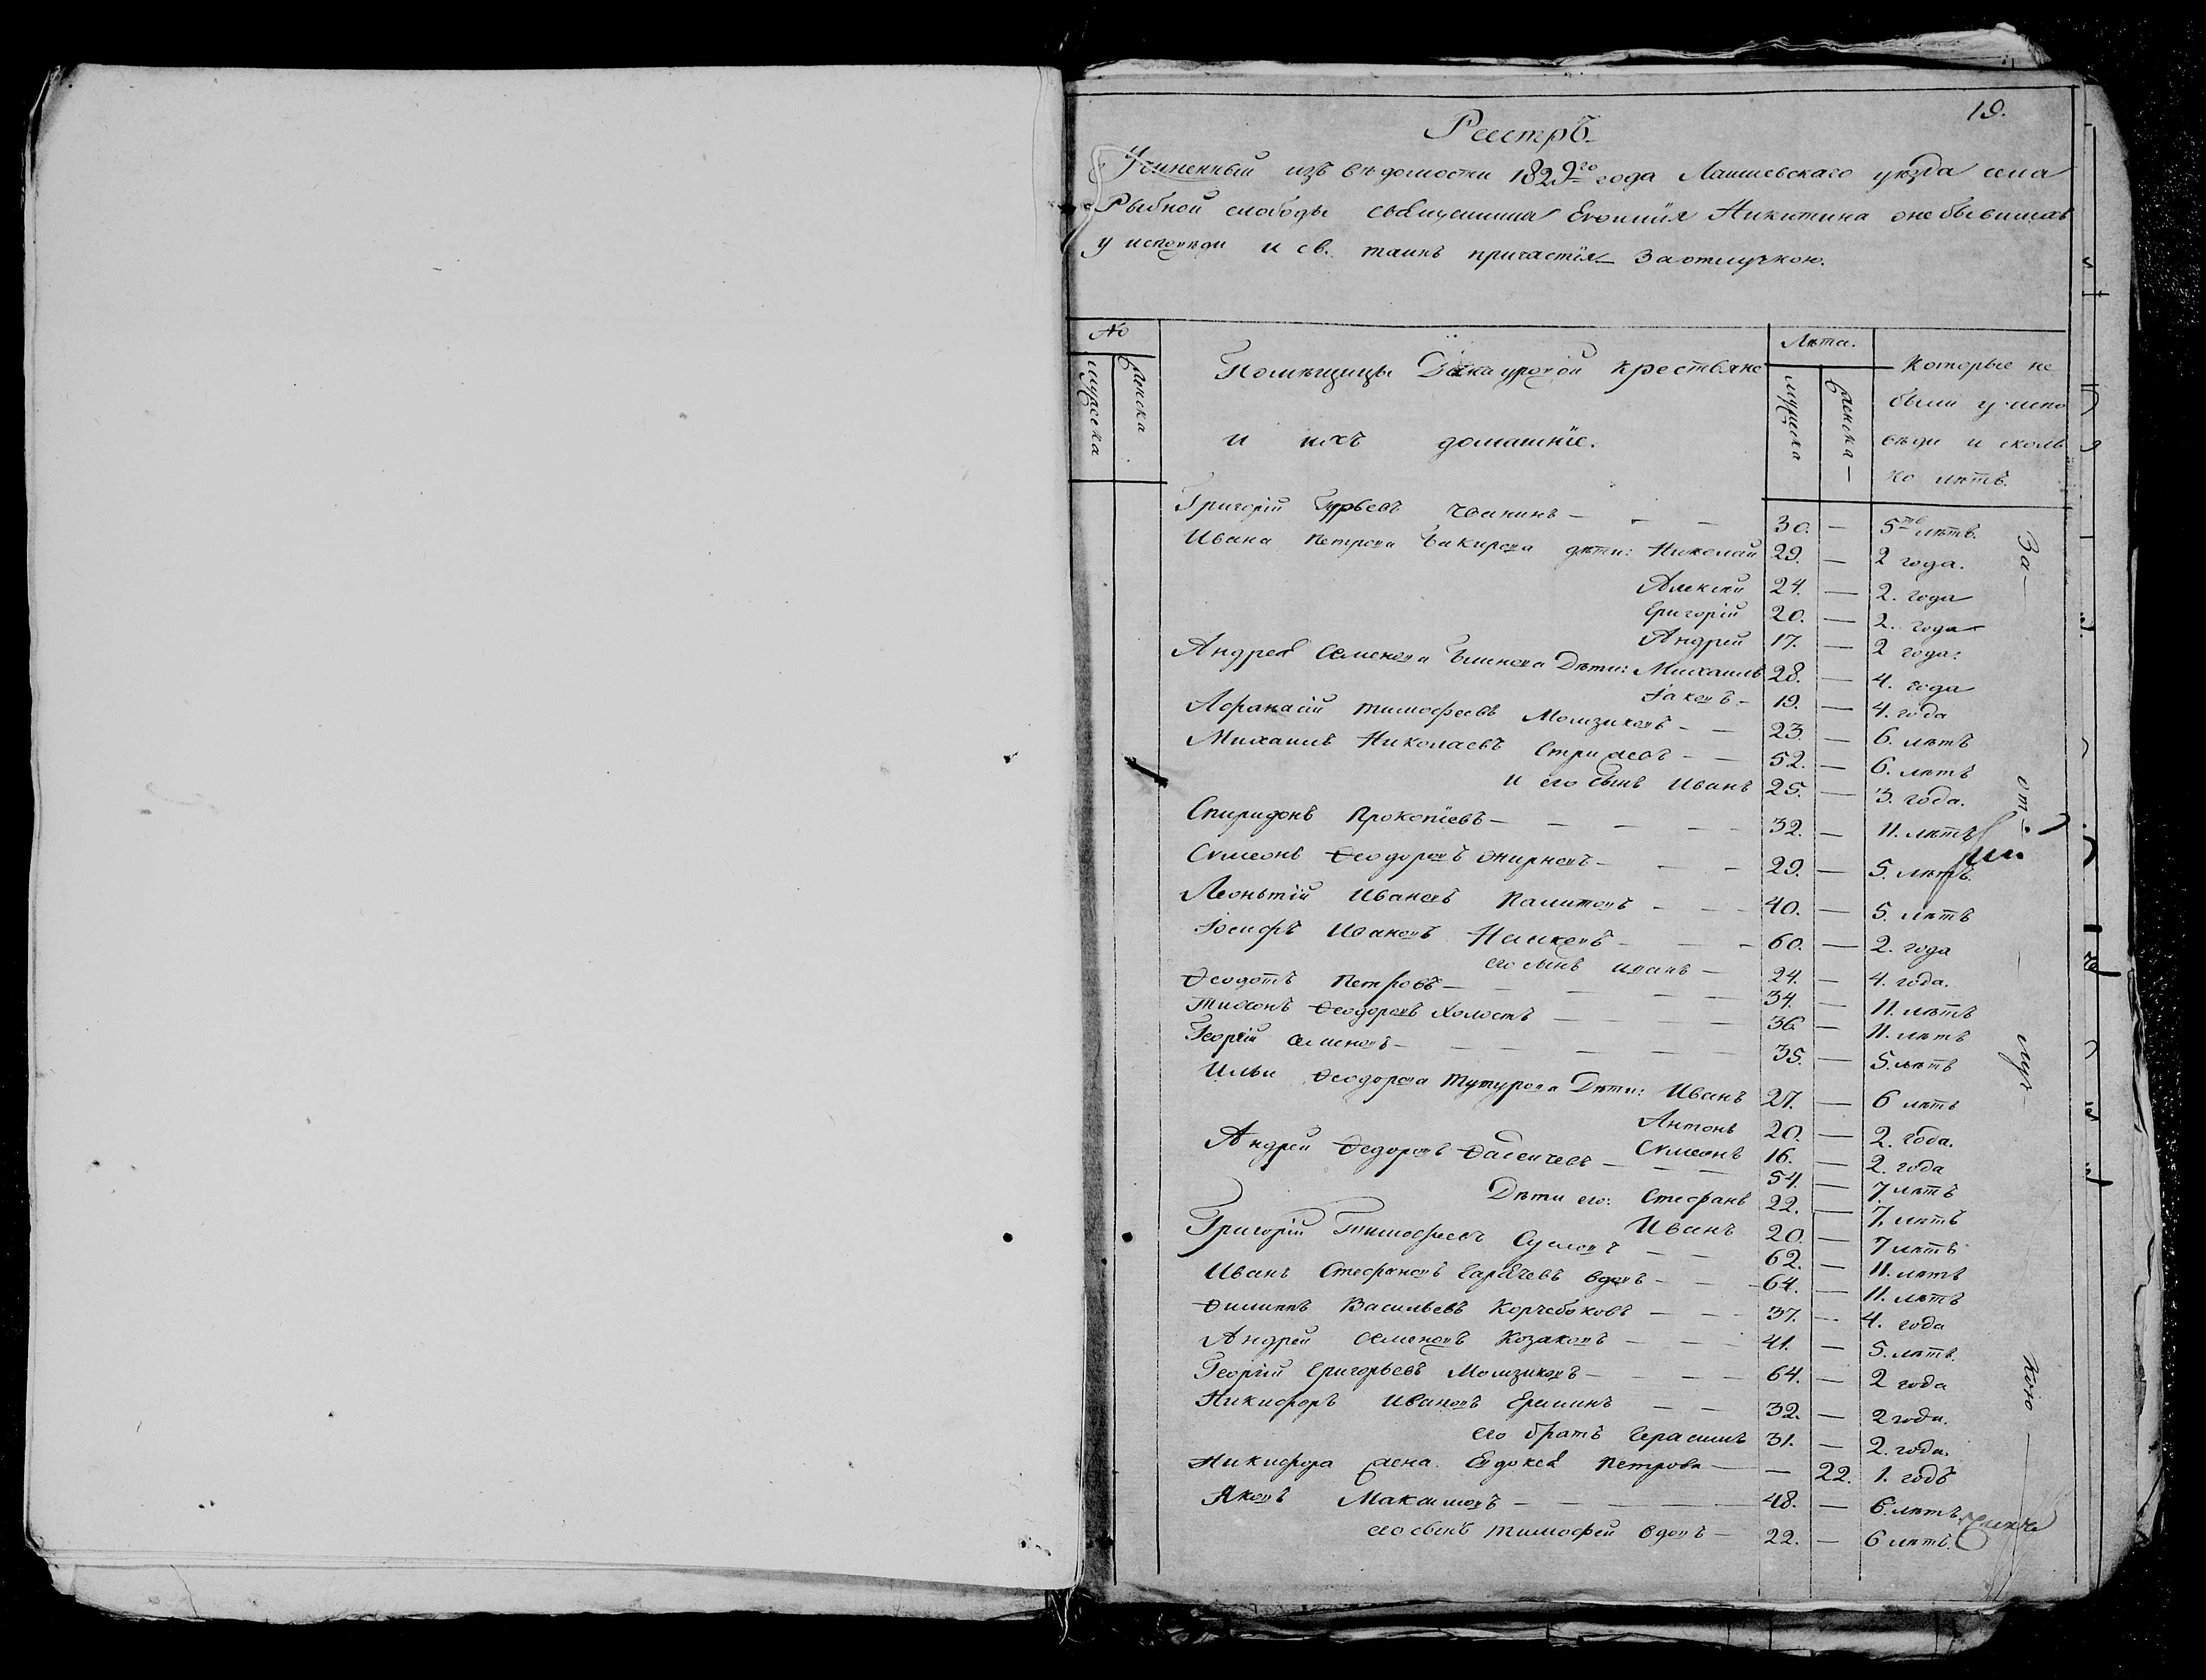 19.
Реестръ
Учиненный изъ вѣдомости 1829го года Лаишевскаго уѣзда села
Рыбной слободы священника Никитина о небывшихъ
у исповѣди и св. таинъ причастїя за отлучкою.
№
мужска
женска
Помѣщицы крестьяне
и ихъ домашнїе.
Лѣта.
мужска
женска
Которые не
были у испо
вѣди и сколь
ко лѣтъ.
Григорїй Гурьевъ Чванинъ — 30. — 5ть лѣтъ.
Ивана Петрова Бакирова дѣти: Николай 29. — 2 года.
Алексѣй 24. — 2. года
Григорїй 20. — 2. года
Андрей 17. — 2 года.
Андрея Семенова дѣти: Михаилъ 28. — 4. года
Iаковъ — 19. — 4. года
Афанасїй Тимофеевъ Момзиковъ — 23. — 6. лѣтъ
Михаилъ Николаевъ Стрижевъ — 52. — 6. лѣтъ
и его сынъ Иванъ 25. — 3. года.
Спиридонъ Прокопїевъ — 32. — 11. лѣтъ
Сѵмеонъ Ѳеодоровъ — 29. — 5. лѣтъ.
Леонътїй Ивановъ Палитовъ — 40. — 5. лѣтъ
Iосифъ Ивановъ — 60. — 2. года
его сынъ Иванъ — 24. — 4. года.
Ѳеодотъ Петровъ — 34. — 11. лѣтъ
Тихонъ Ѳеодоровъ Холостъ — 36. — 11. лѣтъ
Георгїй Семеновъ — 35. — 5. лѣтъ
Ильи Ѳеодорова Тутурова Дѣти: Иванъ 27. — 6 лѣтъ
Антонъ 20. — 2. года.
Сѵмеонъ 16. — 2. года
Андрей Ѳедоровъ Ѳадеичевъ — 54. — 7 лѣтъ
Дѣти его: Стефанъ 22. — 7. лѣтъ
Иванъ 20. — 7 лѣтъ
Григорїй Тимофеевъ Сусловъ — 62. — 11. лѣтъ
Иванъ Стефановъ вдовъ — 64. — 11. лѣтъ
Ѳилиппъ Васильевъ Корчебоковъ — 37. — 4. года
Андрей Семеновъ Козаковъ — 41. — 5. лѣтъ.
Георгїй Григорьевъ Момзиковъ — 64. — 2 года
Никифоръ Ивановъ Ереминъ — 32. — 2 года.
его братъ Герасимъ 31. — 2. года.
Никифора жена Евдокея Петрова — — 22. 1. годъ
Яковъ Максимовъ — 48. — 6. лѣтъ
его сынъ Тимофей вдовъ — 22. — 6 лѣтъ.
За — от — луч — кою —